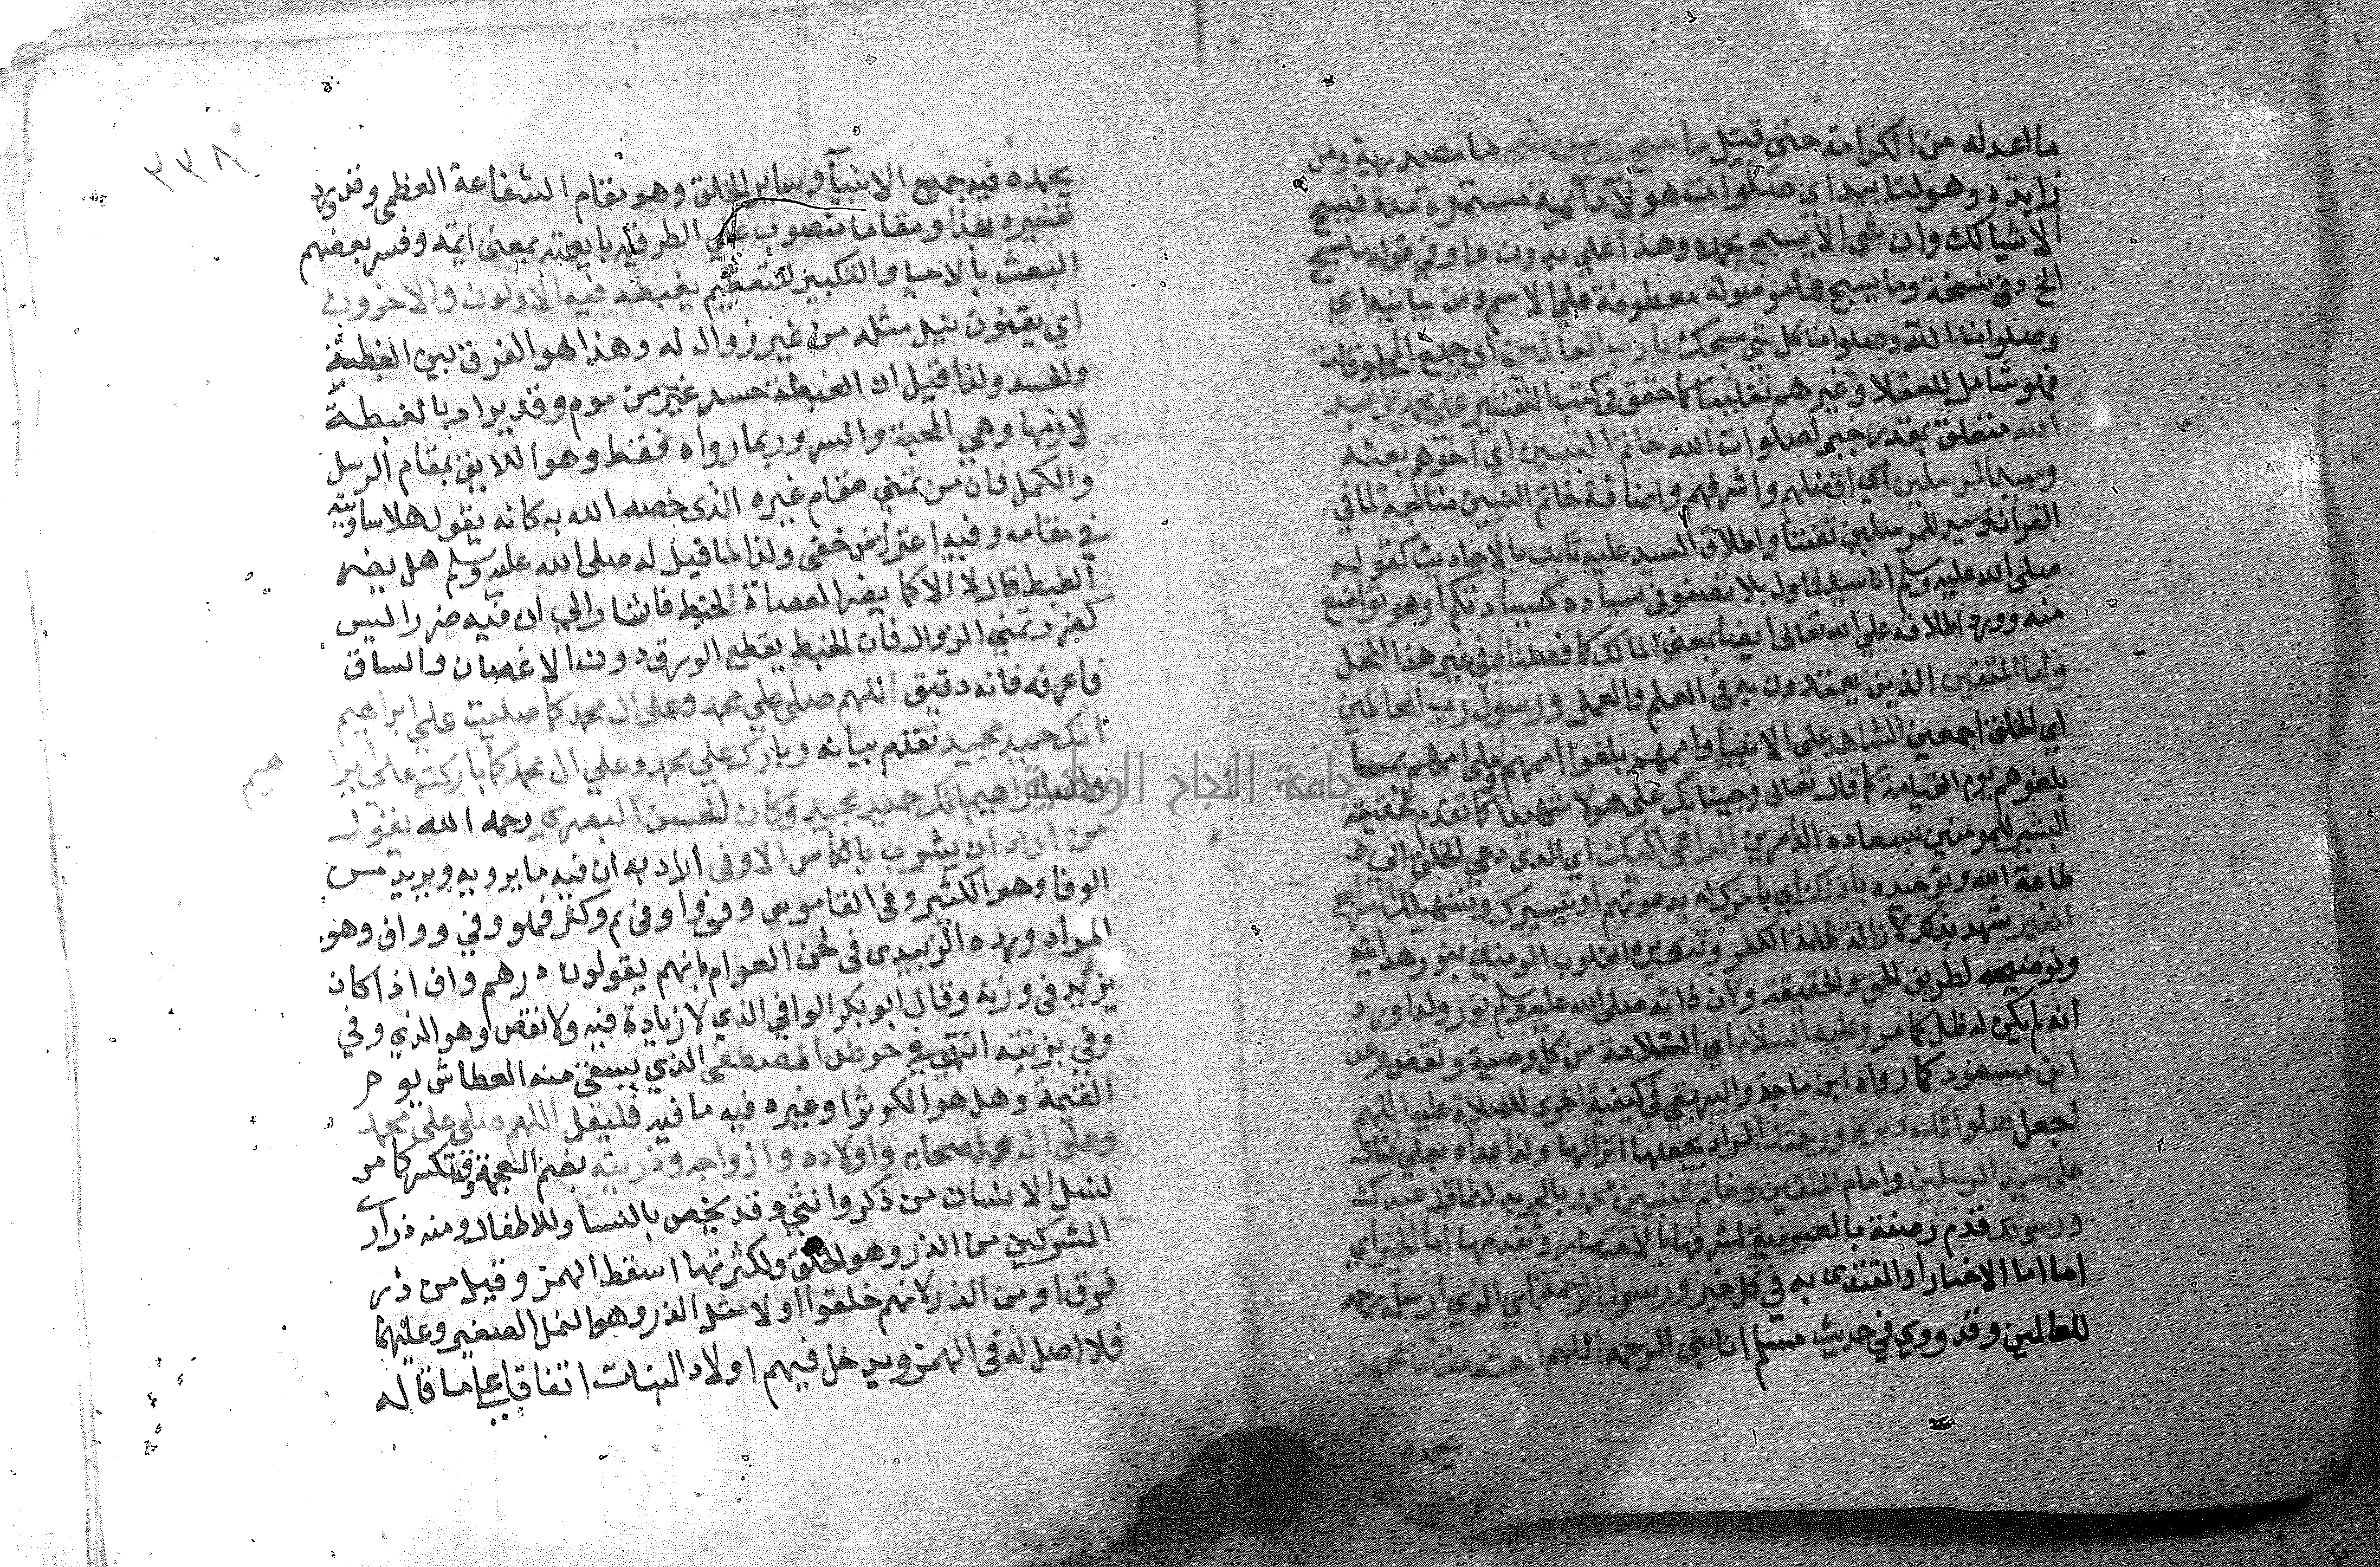 ما اعد له من الكرامة حتى قيل ما سبح لك من شى ما مصدرية ومن
زايدة وهو لتابيد اي صلوات هولاء دآئمية مستمرة مدة فيسبح
الاشيا لك وان شى الا يسبح بحمده وهذا على بدون ما وفي قوله ما سبح
الخ وفي نسخة وما يسبح فما موصولة معطوفة على الاسم ومن بيانيه اي
وصلوات الله وصلوات كل شي سبحك يا رب العالمين اي جميع المخلوقات
فهو شامل للعقلا وغيرهم تغليبا كما حقق في كتب التفسير على محمد بن عبد
الله متعلق بمقدر خبر لصلوات الله خاتم النبيين اي اخرهم بعثه
وسيد المرسلين اي افضلهم واشرفهم واضافة خاتم النبيين متابعة لما في
القران وسيد المرسلين تفننا واطلاق السيد عليه ثابت بالاحاديث كقوله
صلى الله عليه وسلم انا سيد
منه وورد اطلاقه علي الله تعالى ايضا بمعني المالك كما فصلناه في غير هذا المحل
وامام المتقين الذين يقتدون به في العلم والعمل ورسول رب العالمين
اي الخلق اجمعين الشاهد على الانبيا واممهم بلغوا اممهم وعلى اممهم بما
بلغوهم يوم القيامة كما قال تعالى وجينا بك على هولا شهيدا كما تقدم تحقيقه
البشير للمومنين بسعاده الدارين الداعي اليك اي الذى دعي الخلق الى
طاعة الله وتوحيده باذنك اي بامرك له بدعوتهم او بتيسيرك وتسهيلك السراج
المنير شهد بذلك لازالة ظلمة الكفر وتنويره القلوب المومنين بنور هدايته
وتوضيحه لطريق الحق والحقيقة ولان ذاته صلى الله عليه وسلم نور ولذا ورد
انه لم يكن له ظل كما مر وعليه السلام اي السلامة من كل وصمة ونقص وعن
ابن مسعود كما رواه ابن ماجة والبيهقي في كيفية اخرى للصلاة عليه اللهم
اجعل صلواتك وبركاتك ورحمتك المراد بجعلها انزالها ولذا عداه بعلي فقال
على سيد المرسلين وامام المتقين وخاتم النبيين محمد بالجر بدل مما قبله عبدك
ورسولك قدم وصفه بالعبودية لشرفها بالاختصار وتقدمها امام الخير اي
امام الاخيار او المقتدى به في كل خير ورسول الرحمة اي الذي ارسله رحمه
للعالمين وقد روي في حديث مسلم انا نبى الرحمه اللهم ابعثه مقاما محمودا
يحمده
٢٣٨
يحمده فيه جميع الانبيآ وساير الخلق وهو مقام الشفاعة العظمى وقد ورد
تفسيره بهذا ومقاما منصوب علي الظرفيه بابعثه بمعنى اقمه وفسر بعضهم
البعث بالاحيا والتكبير للتعظيم يغبطه فيه الاولون والاخرون
اي يتمنون نيل مثله من غير زوال له وهذا هو الفرق بين الغبطة
والحسد ولذا قيل ان الغبطة حسد غير مذموم وقد يراد بالغبطة
لازمها وهي المحبة والسرور بما رواه فقط وهو اللايق بمقام الرسل
والكمل فان من تمني مقام غيره الذى خصه الله به كانه يقول هلا ساويته
في مقامه وفيه اعتراض خفى ولذا لما قيل له صلى الله عليه وسلم هل يضر
الغبط قال لا الا كما يضر العضاة الخبط فاشار الي ان فيه ضررا ليس
كضرر تمني الزوال فان الخبط يقطع الورق دون الاغصان والساق
فاعرفه فانه دقيق اللهم صلى علي محمد وعلى ال محمد كما صليت علي ابراهيم
انك حميد مجيد تقدم بيانه وبارك علي محمد وعلي ال محمد كما باركت على ابرا هيم
وال ابراهيم انك حميد مجيد وكان الحسن البصري رحمه الله يقول
من اراد ان يشرب بالكاس الاوفى اراد به ان فيه ما يرويه ويزيد من
الوفا وهو الكثير وفى القاموس وفى كرم وكثر فهو وفي وواف وهو
المراد ورده الزبيدى فى لحن العوام بانهم يقولون درهم واف اذا كان
يزيد فى وزنه وقال ابو بكر الوافي الذي لا زيادة فيه ولا نقص وهو الذي وفي
وفي بزنته انتهى في حوض المصطفى الذي يسقى منه العطاش يوم
القيمة وهل هو الكوثر او غيره فيه ما فيه فليقل اللهم صلى على محمد
وعلى اله واصحابه واولاده وازواجه وذريته بضم المعجمة وقد تكسر كما مر
لنسل الانسان من ذكر وانثي وقد يخص بالنسا والاطفال ومنه ذراري
المشركين من الذرو وهو الخلق ولكثرتها اسقط الهمز وقيل من ذر
فرق او من الذر لانهم خلقوا اولا مثل الذر وهو النمل الصغير وعليهما
فلا اصل له فى الهمز ويدخل فيهم اولاد البنات اتفاقا على ما قاله
جامعة النجاح الوطنية